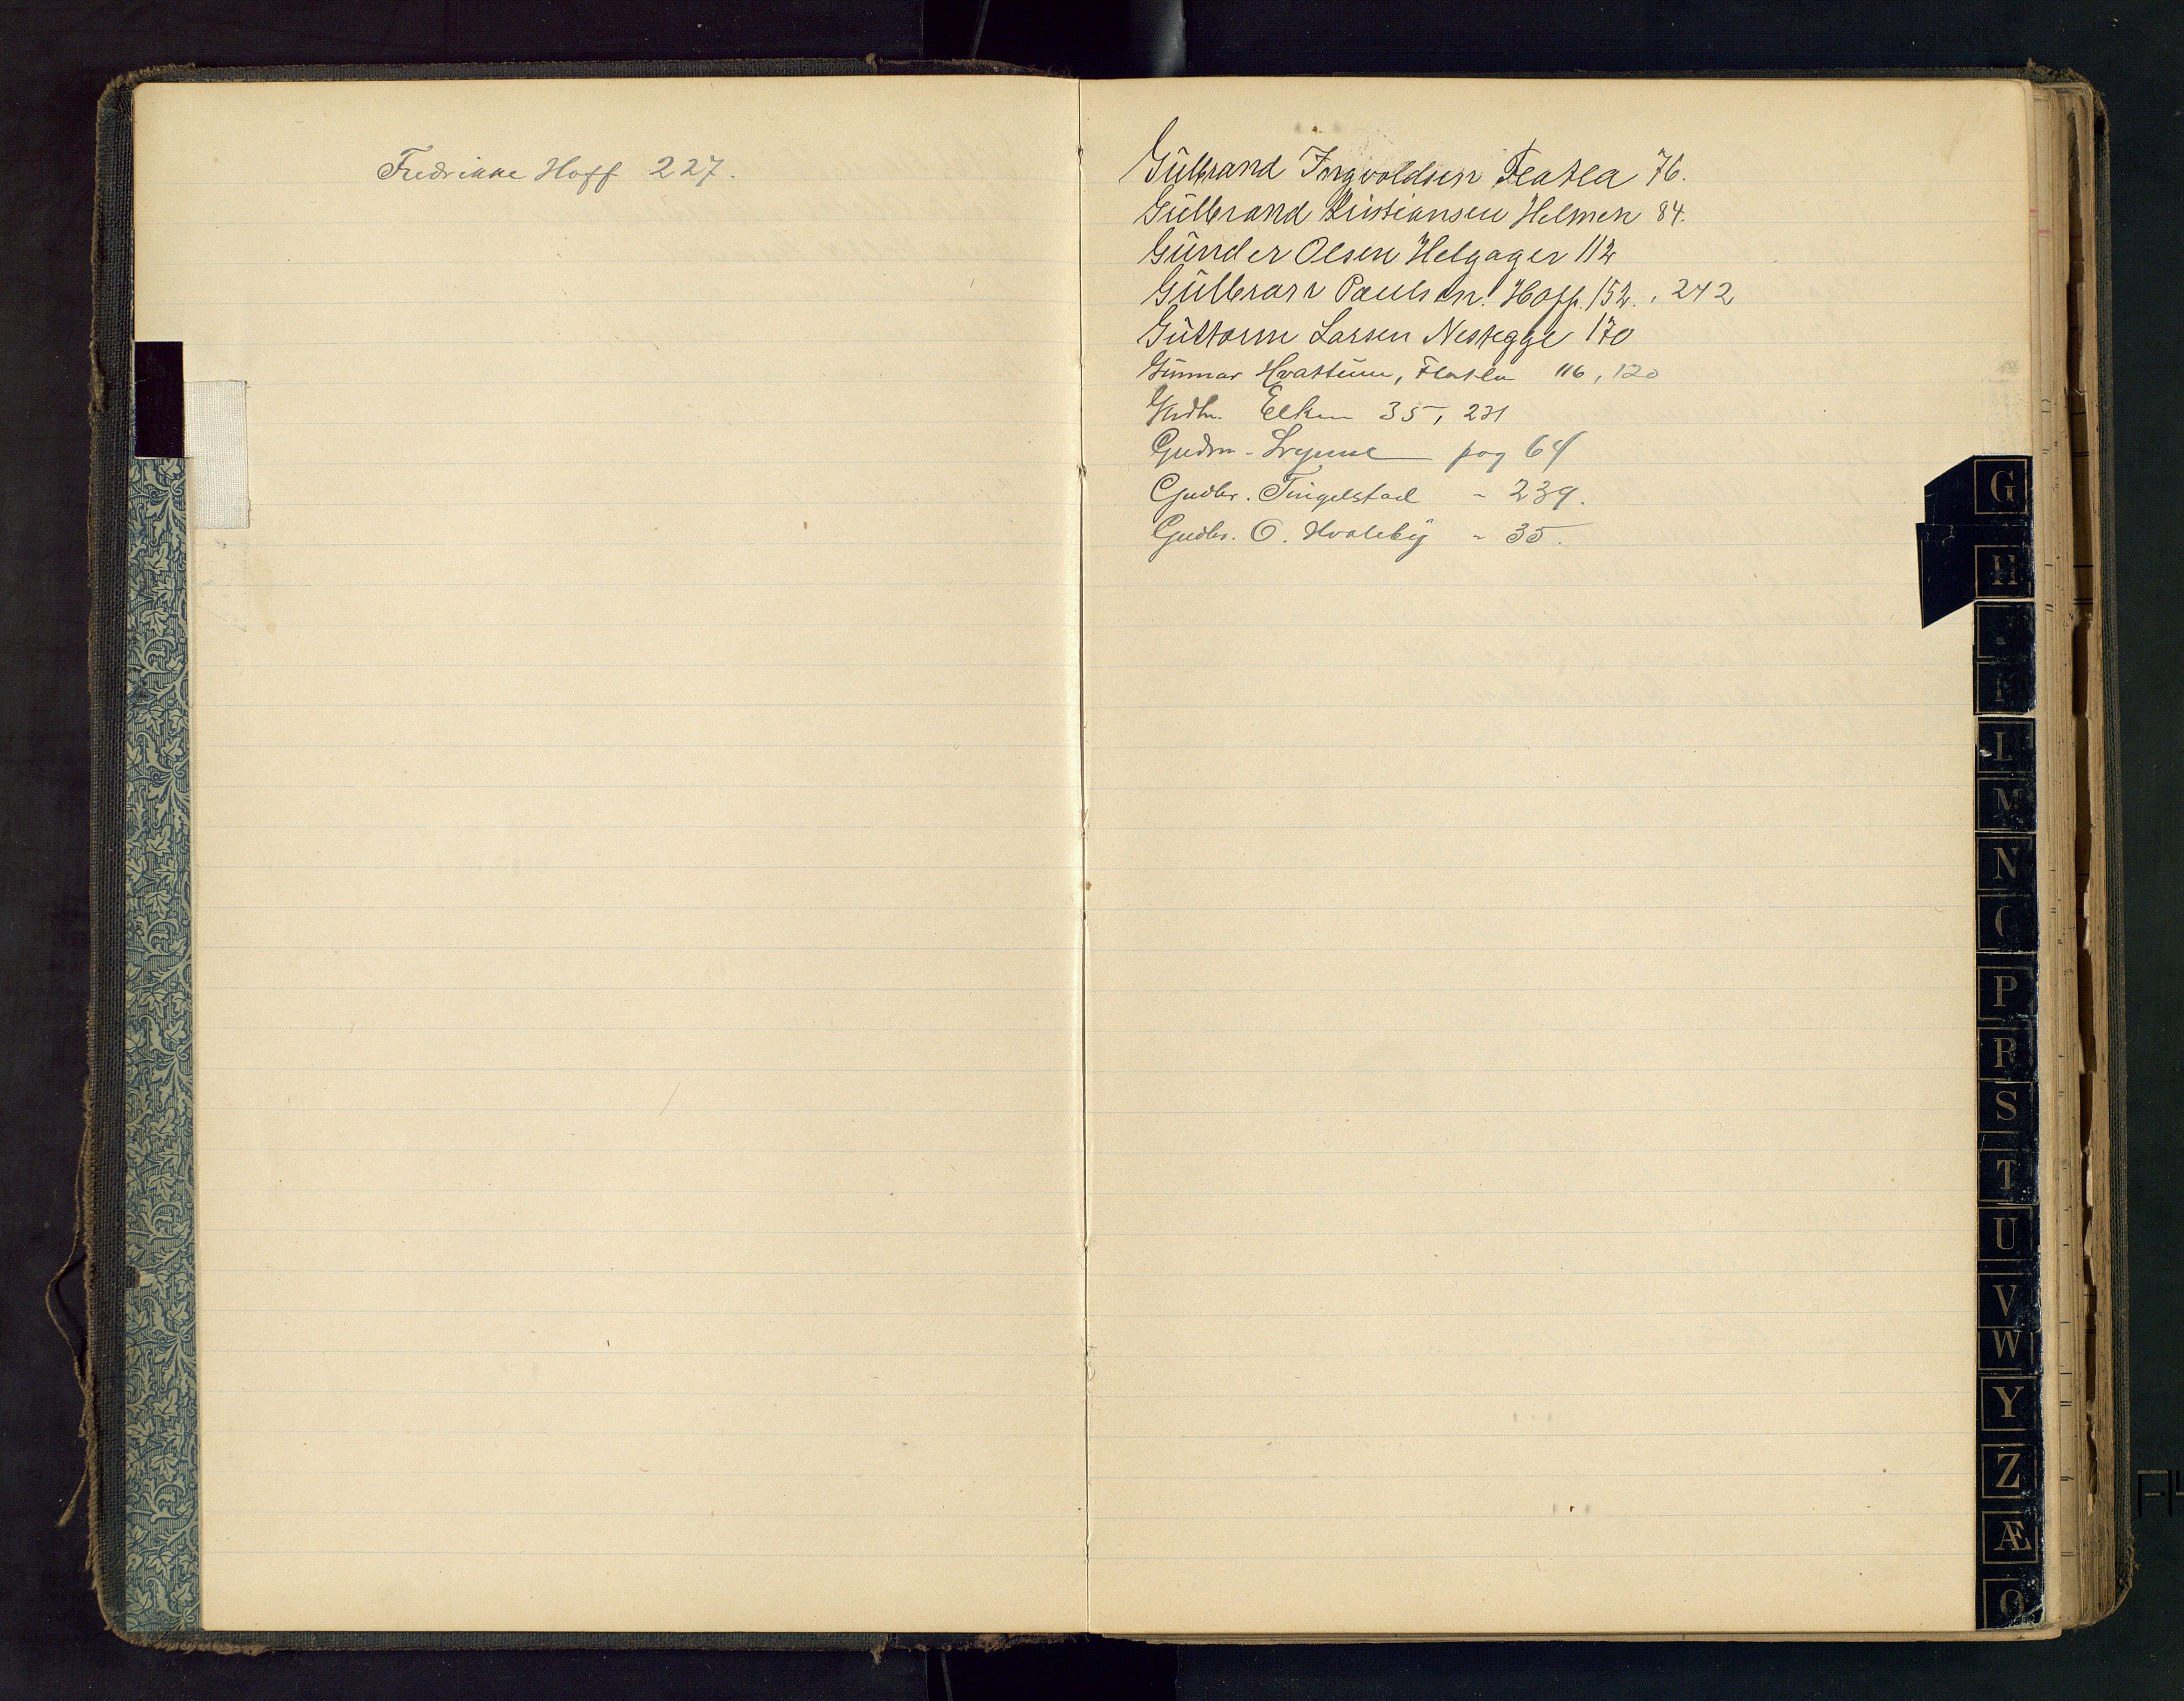 Fredrikke Hoff 227.
Gulbrand Ingvoldsen Flatla 76.
Gulbrand Kristiansen Helmen 84.
Gunder Olsen Helgager 112
Gulbran Paulsen. Hoff. 152. , 242
Guttorm Larsen Nestegge 170
Gunnar Hvattum, Flatla 116, 120
Gudbr. Elken 35, 231
pag 64
Gudbr. Tingelstad - 239.
Gudbr. O. Hvaleby - 35.
G
H
L
M
N
P
R
S
T
U
V
W
Y
Z
Æ